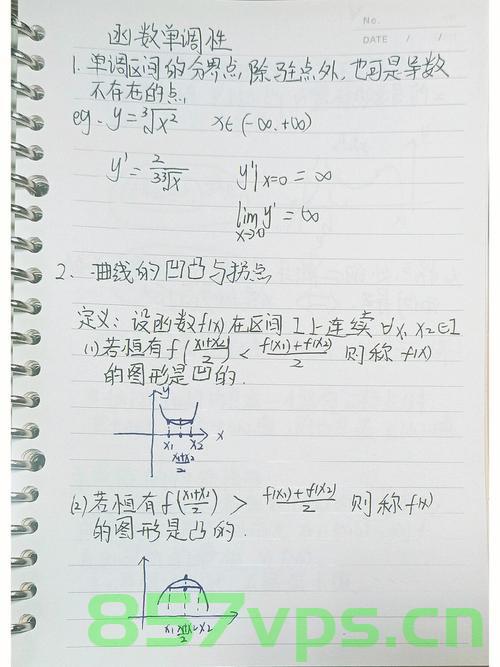 No.
DATE / /
函数单调性
1. 单调区间的分界点,除驻点外,也可是导数
不存在的点.
eg. y=∛x² x∈(-∞,+∞)
y'=2/(3∛x) y'|x=0 = ∞
lim y' = ∞
x→0
2. 曲线的凹凸与拐点
定义: 设函数f(x)在区间I上连续 ∀x₁,x₂∈I
(1)若恒有f((x₁+x₂)/2) < (f(x₁)+f(x₂))/2 则称f(x)
的图形是凹的.
y
x₁ x₂ x
(x₁+x₂)/2
(2)若恒有f((x₁+x₂)/2) > (f(x₁)+f(x₂))/2 则称f(x)
的图形是凸的.
x₁ (x₁+x₂)/2 x₂
857vps.cn